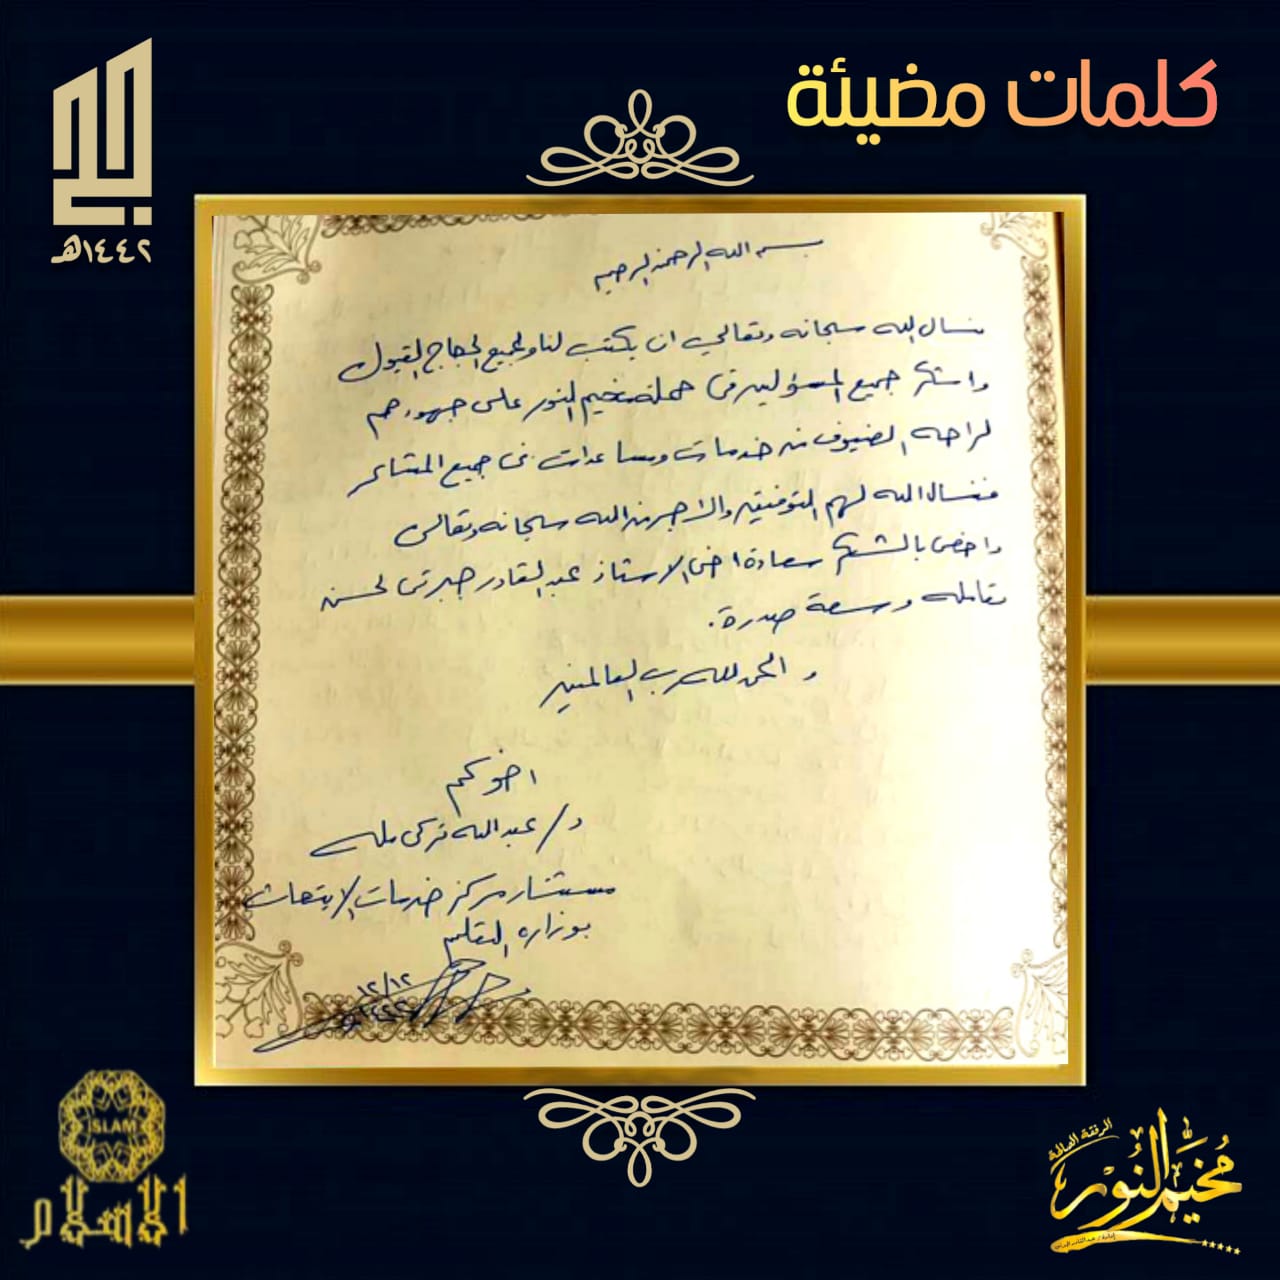 كلمات مضيئة
١٤٤٢هـ
بسم الله الرحمن الرحيم
نسال الله سبحانه وتعالى ان يكتب لنا ولجميع الحجاج القبول
واشكر جميع المسؤولين في حملة مخيم النور على جهودهم
لراحة الضيوف من خدمات ومساعدات في جميع المشاعر
فنسال الله لهم التوفيق والاجر من الله سبحانه وتعالى
واخص بالشكر سعادة اخي الاستاذ عبدالقادر جبرتي لحسن
تعامله وسعة صدرة.
والحمد لله رب العالمين
اخوكم
د/ عبدالله تركي
مستشار مركز خدمات الابتعاث
بوزارة التعليم
١٢/١٢
١٤٤٢
ISLAM
الإسلام
الرفقة الصالحة
مخيم النور